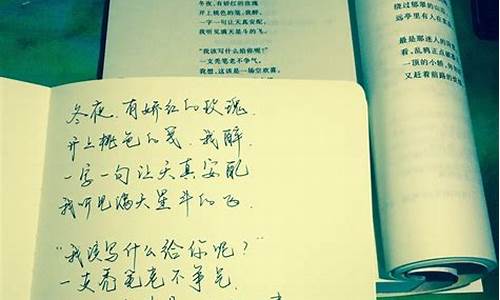 冬夜,有娇红的玫瑰
开上桃色的笺,我醉,
一字一句让天真安配
我听见满天星斗的飞
“我该写什么给你呢?”
一支秃笔老不争气
冬夜,有娇红的玫瑰
开上桃色的笺,我醉,
一字一句让天真安配,
我听见满天星斗的飞。
“我该写什么给你呢?”
一支秃笔老不争气。
我想,这该是一场空欢喜。
绕过郁翠的山
远亭里有人在
最是那迷人的
看,乱鸦正点
一顶的小轿,
又赶着前路的